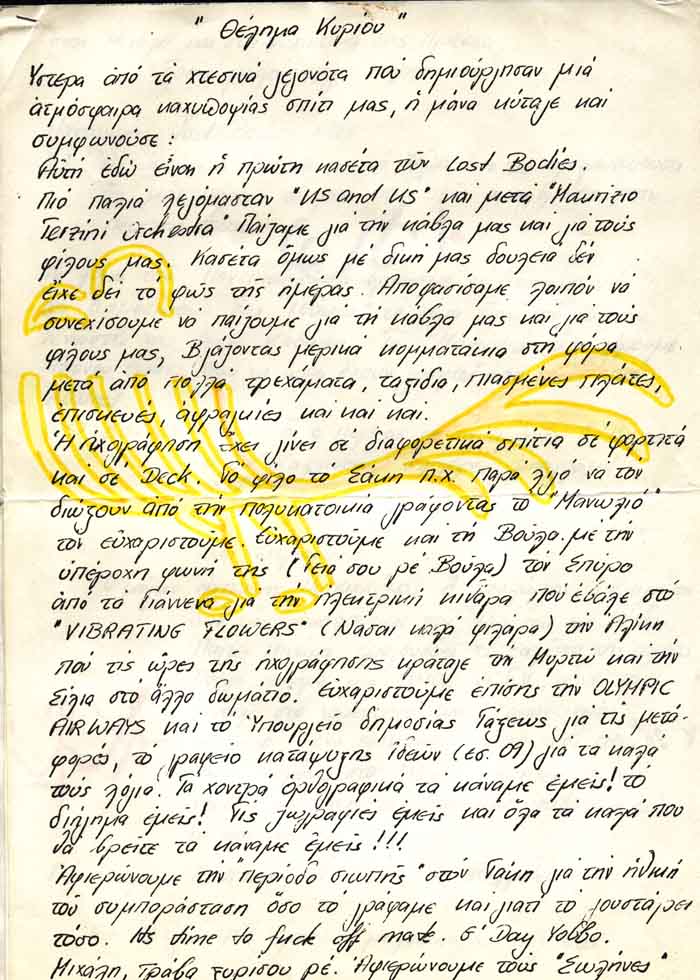 "Θέλημα Κυρίου"
Ύστερα ἀπό τά χτεσινά γεγονότα πού δημιούργησαν μιά
ἀτμόσφαιρα καχυποψίας σπίτι μας, ἡ μάνα κύταγε καί
συμφωνούσε:
Αὐτή ἐδώ εἶναι ἡ πρώτη κασέτα τῶν Lost Bodies.
Πιό παλιά λεγόμασταν "US and US" καί μετά "Maurizio
Terzini Orchestra" Παίζαμε γιά τήν κάβλα μας καί γιά τούς
φίλους μας. Κασέτα ὅμως μέ δική μας δουλειά δέν
εἶχε δεί τό φῶς τῆς ἡμέρας. Αποφασίσαμε λοιπόν νά
συνεχίσουμε νά παίζουμε γιά τή κάβλα μας καί γιά τούς
φίλους μας, βγάζοντας μερικά κομματάκια στη φόρα
μετά ἀπό πολλά τρεχάματα, ταξίδια, πιασμένες πλάτες,
ἐπισκευές, αφραγκιές καί καί καί.
Ἡ ἠχογράφηση ἔχει γίνει σέ διαφορετικά σπίτια σέ φορητά
καί σέ Deck. Τό φίλο τό Σάκη π.χ. παρά λιγό νά τόν
διώξουν ἀπό τήν πολυκατοικία γράφοντας τό "Μανωλιό"
τόν εὐχαριστοῦμε. Εὐχαριστοῦμε καί τή Βούλα με τήν
ὑπέροχη φωνή της (Γειά σου ρέ Βούλα) τόν Σπύρο
ἀπό τά Γιάννενα γιά τήν ἠλεκτρική κινάρα πού ἔβαλε στό
"VIBRATING FLOWERS" (Νἄσαι καλά φιλάρα) τήν Ἀλίκη
πού τίς ὧρες τῆς ἠχογράφησης κράταγε τήν Μυρτώ καί τήν
Σίλια στό ἄλλο δωμάτιο. Εὐχαριστοῦμε ἐπίσης τήν OLYMPIC
AIRWAYS καί τό Ὑπουργείο δημοσίας Τάξεως γιά τίς μετα-
φορές, τό γραφείο κατάψυξης ἰδεῶν (εσ. 09) γιά τά καλά
τούς λόγια. Τα χοντρά ὀρθογραφικά τά κάναμε ἐμεῖς! τό
διήγημα ἐμείς! Τίς ζωγραφιές ἐμείς καί ὅλα τά καλά που
θά βρεῖτε τά κάναμε ἐμεῖς!!!
Ἀφιερώνουμε τήν "περίοδο σιωπῆς" στόν Τάκη γιά τήν ἠθική
τοῦ συμπαράσταση ὅσο τό γράφαμε καί γιατί τό γουστάρει
τόσο. It's time to fuck off mate. σ' Day Yobbo.
Μιχάλη, τράβα ξυρίσου ρέ. Ἀφιερώνουμε τούς "Σωλῆνες"